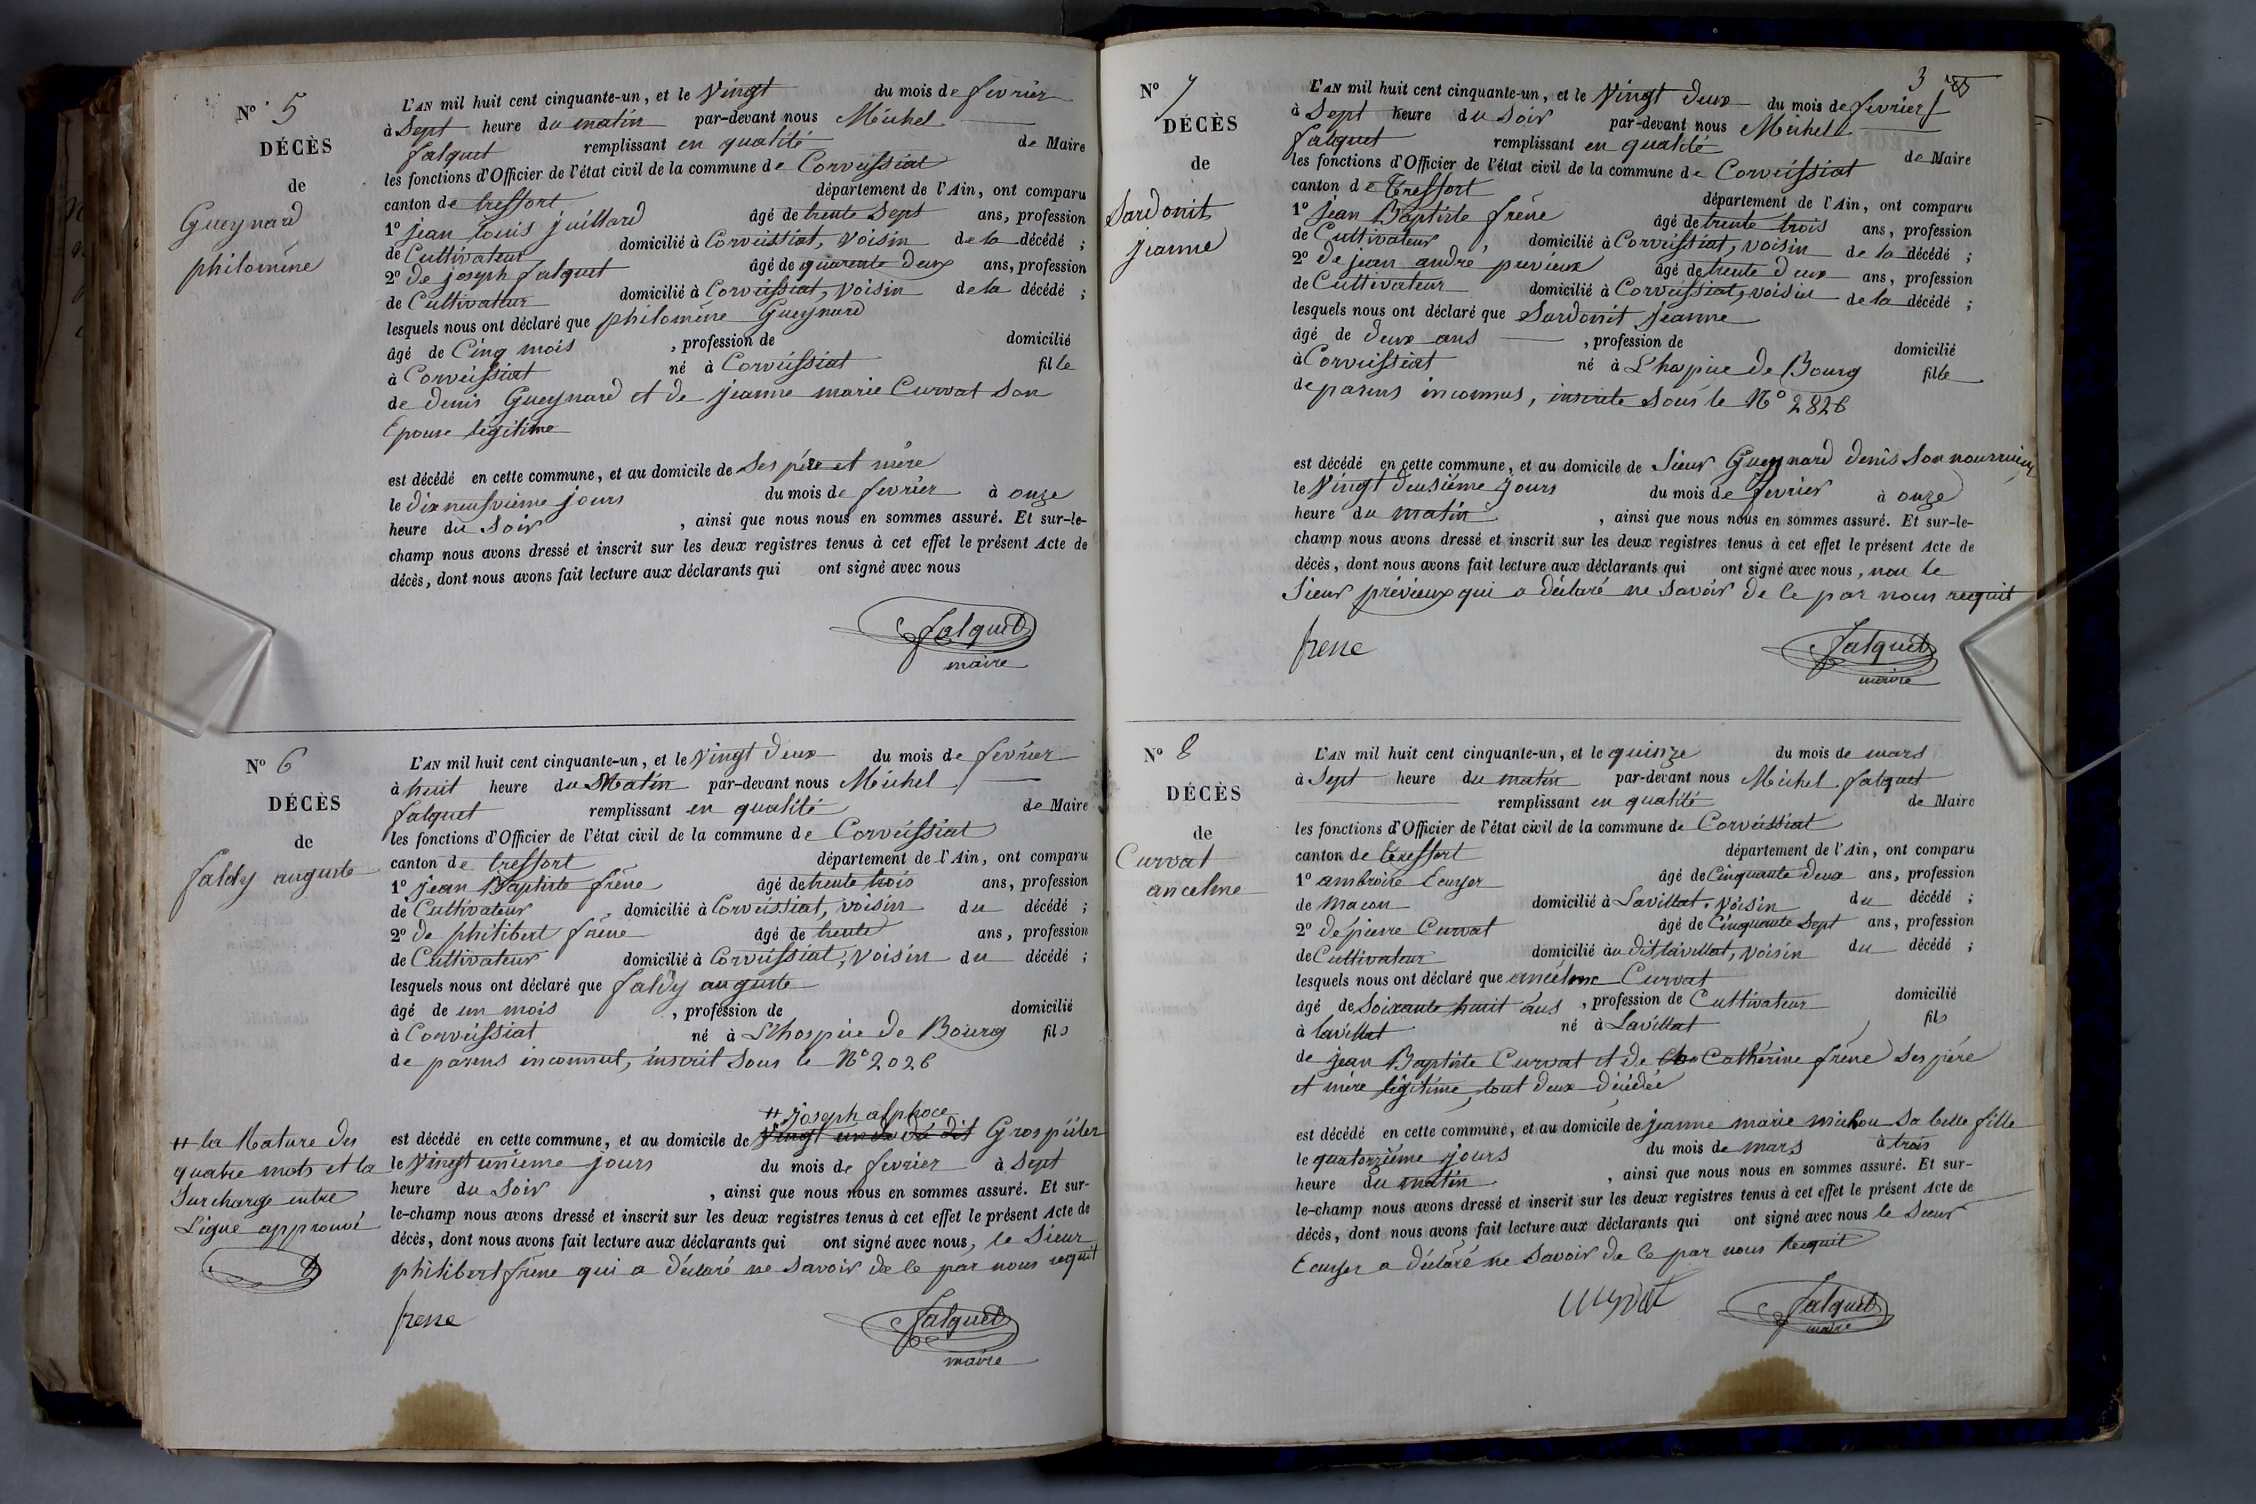 Nº 5
DÉCÈS
de
Gueynard
philomène
L'AN mil huit cent cinquante-un, et le Vingt du mois de fevrier
à Sept heure du matin par-devant nous Michel
falquet remplissant en qualité de Maire
les fonctions d'Officier de l'état civil de la commune de Corveissiat
canton de treffort département de l'Ain, ont comparu
1º jean Louis juillard âgé de trente Sept ans, profession
de Cultivateur domicilié à Corveissiat, Voisin de la décédé ;
2º de joseph falquet âgé de quarente deux ans, profession
de Cultivateur domicilié à Corveissiat, Voisin de la décédé ;
lesquels nous ont déclaré que philomène Gueynard
âgé de Cinq mois , profession de domicilié
à Corveissiat né à Corveissiat fille
de denis Gueynard et de jeanne marie Curvat son
Epouse légitime
est décédé en cette commune, et au domicile de Ses père et mère
le dix neufvième jours du mois de fevrier à onze
heure du Soir , ainsi que nous nous en sommes assuré. Et sur-le-
champ nous avons dressé et inscrit sur les deux registres tenus à cet effet le présent Acte de
décès, dont nous avons fait lecture aux déclarants qui ont signé avec nous
falquet
maire
Nº 6
DÉCÈS
de
faldy auguste
L'AN mil huit cent cinquante-un, et le Vingt deux du mois de fevrier
à huit heure du Matin par-devant nous Michel
falquet remplissant en qualité de Maire
les fonctions d'Officier de l'état civil de la commune de Corveissiat
canton de treffort département de l'Ain, ont comparu
1º jean Baptiste frène âgé de trente trois ans, profession
de Cultivateur domicilié à Corveissiat, voisin du décédé ;
2º de philibert frène âgé de trente ans, profession
de Cultivateur domicilié à Corveissiat, Voisin du décédé ;
lesquels nous ont déclaré que faldy auguste
âgé de un mois , profession de domicilié
à Corveissiat né à L'hospice de Bourg fils
de parens inconnut, inscrit Sous le Nº 2026
# joseph alphoce
est décédé en cette commune, et au domicile de Gros piéler
le Vingt unième jours du mois de fevrier à Sept
heure du Soir , ainsi que nous nous en sommes assuré. Et sur-
le-champ nous avons dressé et inscrit sur les deux registres tenus à cet effet le présent Acte de
décès, dont nous avons fait lecture aux déclarants qui ont signé avec nous, le Sieur
philibert frène qui a déclaré ne Savoir de ce par nous requit
# la Rature des
quatre mots et la
Surcharge entre
Ligne approuvé
frene
falquet
maire
3
Nº 7
DÉCÈS
de
Sardonit
jeanne
L'AN mil huit cent cinquante-un, et le Vingt deux du mois de fevrier
à Sept heure du Soir par-devant nous Michel
falquet remplissant en qualité de Maire
les fonctions d'Officier de l'état civil de la commune de Corveissiat
canton de Treffort département de l'Ain, ont comparu
1º jean Baptiste frène âgé de trente trois ans, profession
de Cultivateur domicilié à Corveissiat, voisin de la décédé ;
2º de jean andré previeux âgé de trente deux ans, profession
de Cultivateur domicilié à Corveissiat, voisin de la décédé ;
lesquels nous ont déclaré que Sardonit jeanne
âgé de deux ans , profession de domicilié
à Corveissiat né à L'hospice de Bourg fille
de parens inconnus, inscrite Sous le Nº 2826
est décédé en cette commune, et au domicile de Sieur Gueynard denis Son nourricier
le Vingt deusième jours du mois de fevrier à onze
heure du matin , ainsi que nous nous en sommes assuré. Et sur-le-
champ nous avons dressé et inscrit sur les deux registres tenus à cet effet le présent Acte de
décès, dont nous avons fait lecture aux déclarants qui ont signé avec nous, non le
Sieur prévieux qui a déclaré ne Savoir de ce par nous requit
frene
falquet
maire
Nº 8
DÉCÈS
de
Curvat
ancelme
L'AN mil huit cent cinquante-un, et le quinze du mois de mars
à Sept heure du matin par-devant nous Michel falquet
remplissant en qualité de Maire
les fonctions d'Officier de l'état civil de la commune de Corveissiat
canton de Treffort département de l'Ain, ont comparu
1º ambroise Ecuyer âgé de Cinquante deux ans, profession
de Macon domicilié à Lavillat, Voisin du décédé ;
2º de pierre Curvat âgé de Cinquante Sept ans, profession
de Cultivateur domicilié au dit lavillat, Voisin du décédé ;
lesquels nous ont déclaré que ancelme Curvat
âgé de Soixante huit ans , profession de Cultivateur domicilié
à lavillat né à Lavillat fils
de jean Baptiste Curvat et de Cathérine frène Ses père
et mère légitime, tout deux décédée
est décédé en cette commune, et au domicile de jeanne marie michou Sa belle fille
le quatorzième jours du mois de mars à trois
heure du matin , ainsi que nous nous en sommes assuré. Et sur-
le-champ nous avons dressé et inscrit sur les deux registres tenus à cet effet le présent Acte de
décès, dont nous avons fait lecture aux déclarants qui ont signé avec nous le Sieur
Ecuyer a déclaré ne Savoir de ce par nous Requit
curvat
falquet
maire